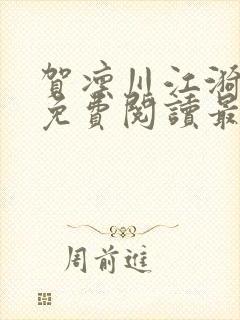 賀凜川江漪
免費閱讀最
周前進